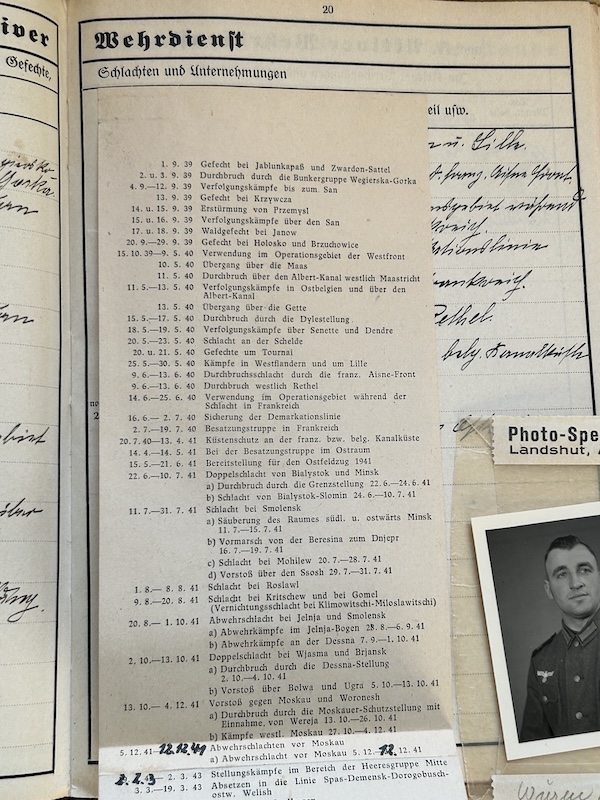 20
iver
Wehrdienst
Gefechte,
Schlachten und Unternehmungen
eil usw.
1. 9. 39 Gefecht bei Jablunkapaß und Zwardon-Sattel
2. u. 3. 9. 39 Durchbruch durch die Bunkergruppe Wegierska-Gorka
4. 9.—12. 9. 39 Verfolgungskämpfe bis zum San
13. 9. 39 Gefecht bei Krzywcza
14. u. 15. 9. 39 Erstürmung von Przemysl
15. u. 16. 9. 39 Verfolgungskämpfe über den San
17. u. 18. 9. 39 Waldgefecht bei Janow
20. 9.—29. 9. 39 Gefecht bei Holosko und Brzuchowice
15. 10. 39—9. 5. 40 Verwendung im Operationsgebiet der Westfront
10. 5. 40 Übergang über die Maas
11. 5. 40 Durchbruch über den Albert-Kanal westlich Maastricht
11. 5.—13. 5. 40 Verfolgungskämpfe in Ostbelgien und über den
Albert-Kanal
13. 5. 40 Übergang über die Gette
15. 5.—17. 5. 40 Durchbruch durch die Dylestellung
18. 5.—19. 5. 40 Verfolgungskämpfe über Senette und Dendre
20. 5.—23. 5. 40 Schlacht an der Schelde
20. u. 21. 5. 40 Gefechte um Tournai
25. 5.—30. 5. 40 Kämpfe in Westflandern und um Lille
9. 6.—13. 6. 40 Durchbruchsschlacht durch die franz. Aisne-Front
9. 6.—13. 6. 40 Durchbruch westlich Rethel
14. 6.—25. 6. 40 Verwendung im Operationsgebiet während der
Schlacht in Frankreich
16. 6.— 2. 7. 40 Sicherung der Demarkationslinie
2. 7.—19. 7. 40 Besatzungstruppe in Frankreich
20. 7. 40—13. 4. 41 Küstenschutz an der franz. bzw. belg. Kanalküste
14. 4.—14. 5. 41 Bei der Besatzungstruppe im Ostraum
15. 5.—21. 6. 41 Bereitstellung für den Ostfeldzug 1941
22. 6.—10. 7. 41 Doppelschlacht von Bialystok und Minsk
a) Durchbruch durch die Grenzstellung 22. 6.—24. 6. 41
b) Schlacht von Bialystok-Slomin 24. 6.—10. 7. 41
11. 7.—31. 7. 41 Schlacht bei Smolensk
a) Säuberung des Raumes südl. u. ostwärts Minsk
11. 7.—15. 7. 41
b) Vormarsch von der Beresina zum Dnjepr
16. 7.—19. 7. 41
c) Schlacht bei Mohilew 20. 7.—28. 7. 41
d) Vorstoß über den Ssosh 29. 7.—31. 7. 41
1. 8.— 8. 8. 41 Schlacht bei Roslawl
9. 8.—20. 8. 41 Schlacht bei Kritschew und bei Gomel
(Vernichtungsschlacht bei Klimowitschi-Miloslawitschi)
20. 8.— 1. 10. 41 Abwehrschlacht bei Jelnja und Smolensk
a) Abwehrkämpfe im Jelnja-Bogen 28. 8.—6. 9. 41
b) Abwehrkämpfe an der Dessna 7. 9.—1. 10. 41
2. 10.—13. 10. 41 Doppelschlacht bei Wjasma und Brjansk
a) Durchbruch durch die Dessna-Stellung
2. 10.—4. 10. 41
b) Vorstoß über Bolwa und Ugra 5. 10.—13. 10. 41
13. 10.— 4. 12. 41 Vorstoß gegen Moskau und Woronesh
a) Durchbruch durch die Moskauer-Schutzstellung mit
Einnahme von Wereja 13. 10.—26. 10. 41
b) Kämpfe westl. Moskau 27. 10.—4. 12. 41
5. 12. 41—22.12.41 Abwehrschlachten vor Moskau
a) Abwehrschlacht vor Moskau 5. 12.—22. 12. 41
2. 3. 43 Stellungskämpfe im Bereich der Heeresgruppe Mitte
3. 3.—19. 3. 43 Absetzen in die Linie Spas-Demensk-Dorogobusch-
ostw. Welish
u. Lille.
franz. Aisne Front.
sgebiet während
reich.
ationslinie
ankreich.
Rethel.
belg. Kanalküste
Photo-Spe
Landshut, A